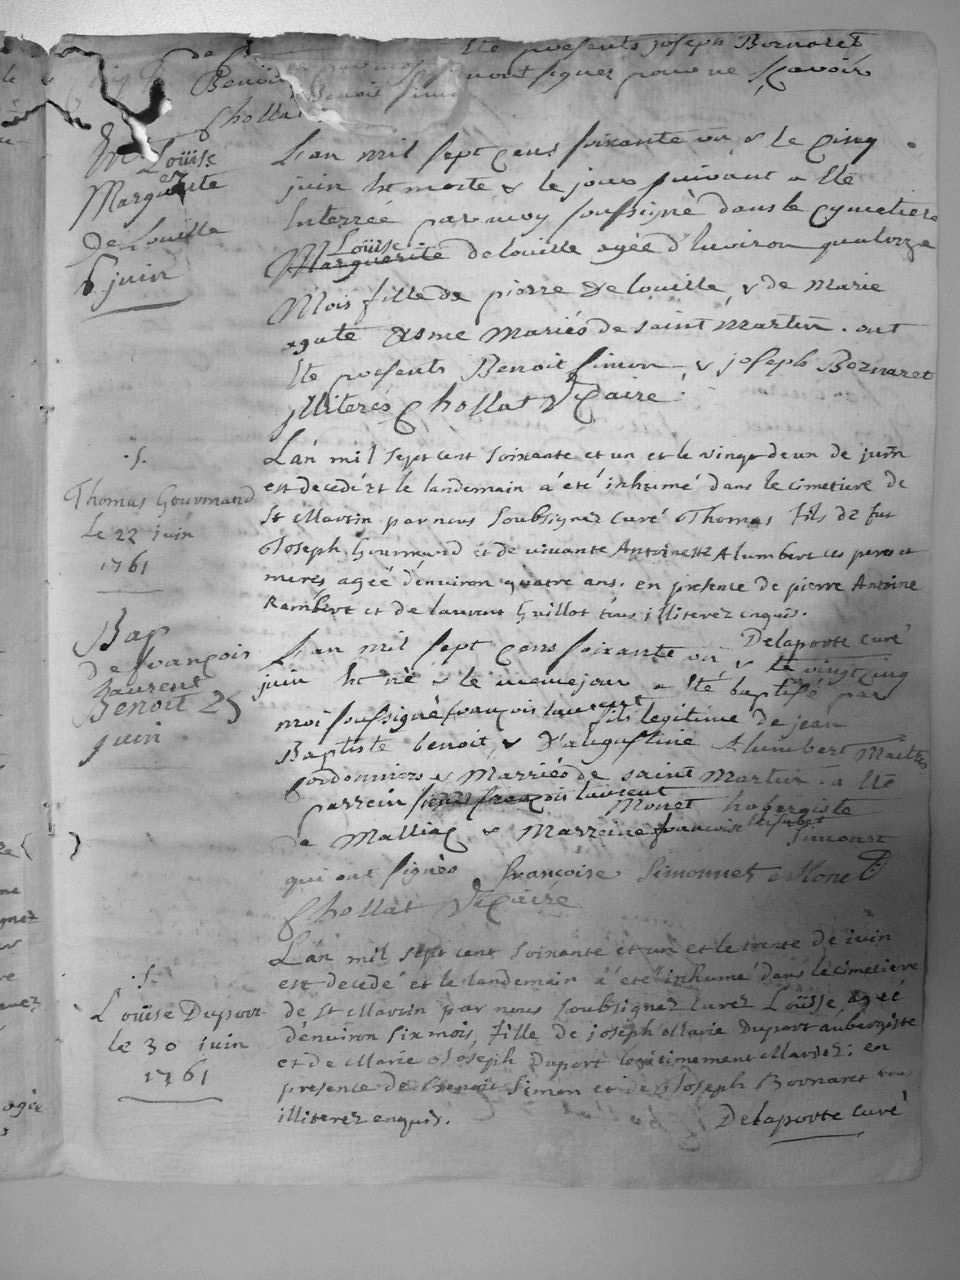 Eté présents joseph Bornaret
de
Benoit
nont signez pour ne Sçavoir
Benoit simon
Chollat
Louise
Marguerite
De Louille
6 juin
Lan mil sept cens soixante un & le cinq
juin Est morte & le jour suivant a Eté
Interrée par moy soussigné dans le cymetiere
Louise
Marguerite delouille agée d'Environ quatorze
Mois fille de pierre Delouille & de Marie
agate Esme Mariés de saint Martin. ont
Eté présents Benoit simon & joseph Bornaret
jlliterés Chollat Vicaire
.S.
Thomas Gourmand
Le 22 juin
1761
L'an mil sept cent soixante et un et le vingt deun de juin
est decedé et le landemain à été inhumé dans le cimetiere de
St Martin par nous soubsignez curé Thomas fils de feu
Joseph Gourmand et de vivante Antoinette Alumbert ces peres et
meres agée d'environ quatre ans. en présence de pierre Antoine
Rambert et de laurent Guillot tous illiterez enquis.
Delaporte curé
Bap
de françois
Laurent
Benoit 25
juin
Lan mil sept cens soixante un & le vingt cinq
juin Est né & le meme jour a Eté baptisé par
moi soussigné françois laurent fils legitime de jean
Baptiste benoit, & d'augustine Alumbert Maitres
Cordonniers & Marriés de saint Martin. a Eté
parrein françois laurent Monet hobergiste
de & Marreine francoise Simonet
qui ont signés françoise Simonnet Monet
Chollat Vicaire
.S.
Louise Duport
le 30 juin
1761
L'an mil sept cent soixante et un et le trente de juin
est decedé et le landemain à été inhumé dans le cimetiere
de St Martin par nous soubsignez curez Louise, agée
d'environ six mois, fille de joseph Marie Duport aubergiste
et de Marie Joseph Duport legitimement Mariez; en
présence de Benoit Simon et de Joseph Bornaret
illiterez enquis.
Delaporte curé